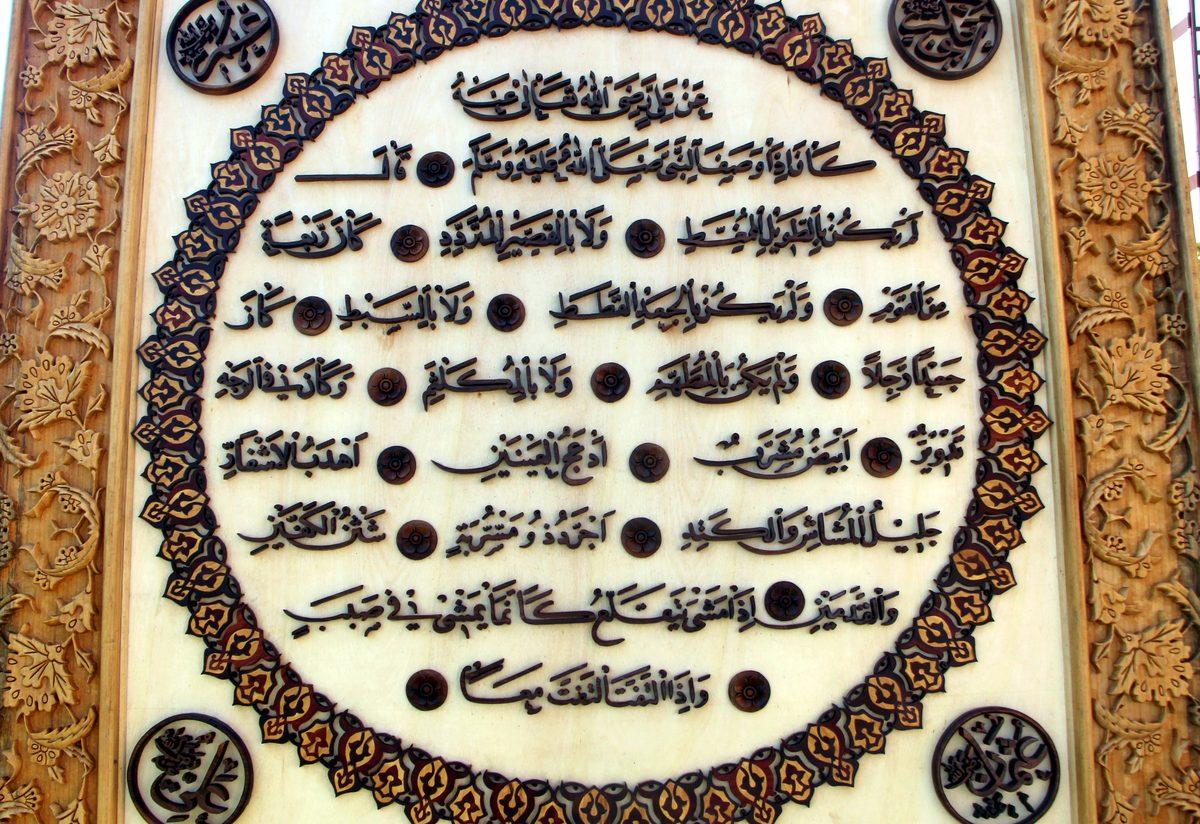 ابو بكر
عمر
عَنْ عَلِيٍّ رَضِيَ اللهُ تَعَالَى عَنْهُ
كَانَ إِذَا وَصَفَ النَّبِيَّ صَلَّى اللهُ عَلَيْهِ وَسَلَّمَ قَالَ
لَمْ يَكُنْ بِالطَّوِيلِ الْمُمَغَّطِ وَلَا بِالْقَصِيرِ الْمُتَرَدِّدِ كَانَ رَبْعَةً
مِنَ الْقَوْمِ وَلَمْ يَكُنْ بِالْجَعْدِ الْقَطَطِ وَلَا بِالسَّبِطِ كَانَ
جَعْدًا رَجِلًا وَلَمْ يَكُنْ بِالْمُطَهَّمِ وَلَا بِالْمُكَلْثَمِ وَكَانَ فِي الْوَجْهِ
تَدْوِيرٌ أَبْيَضُ مُشْرَبٌ أَدْعَجُ الْعَيْنَيْنِ أَهْدَبُ الْأَشْفَارِ
جَلِيلُ الْمُشَاشِ وَالْكَتَدِ أَجْرَدُ ذُو مَسْرُبَةٍ شَثْنُ الْكَفَّيْنِ
وَالْقَدَمَيْنِ إِذَا مَشَى يَتَقَلَّعُ كَأَنَّمَا يَمْشِي فِي صَبَبٍ
وَإِذَا الْتَفَتَ الْتَفَتَ مَعًا
عثمان
علي